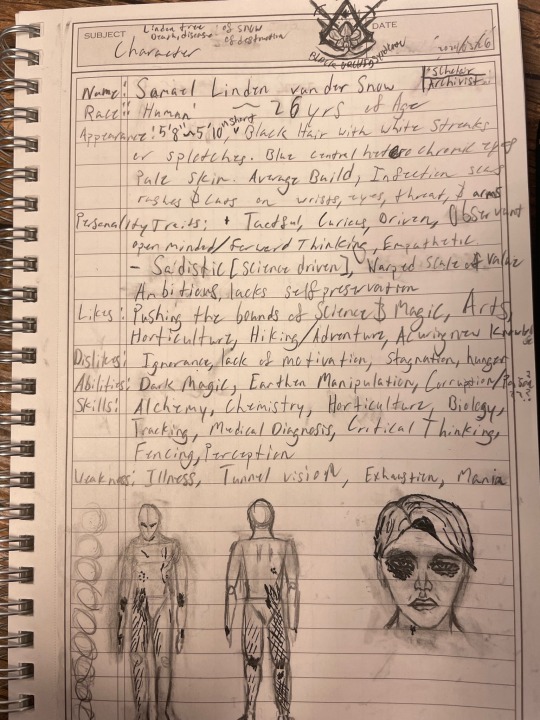 SUBJECT
Linden tree of snow
of destruction
Character
DATE
Scholar
Archivist
Name: Samael Linden van der Snow
Race: Human ~ 26 yrs of Age
Appearance: 5'8"~5'10" Black Hair with white Streaks
or splotches. Blue central heterochromia eyes
Pale skin. Average Build, Infection scars
rashes & cuts on wrists, eyes, throat, & arms
Personality Traits: + Tactful, Curious, Driven, Observant
open minded/Forward Thinking, Empathetic.
- Saidistic [science driven], Warped Scale of value
Ambitious, lacks self preservation
Likes: Pushing the bounds of Science & Magic, Arts,
Horticulture, Hiking/Adventure, new
Dislikes: Ignorance, lack of motivation, Stagnation, hunger
Abilities: Dark Magic, Earthen Manipulation, Corruption/
Skills: Alchemy, Chemistry, Horticulture, Biology,
Tracking, Medical Diagnosis, Critical Thinking,
Fencing, Perception
Weakness: Illness, Tunnel vision, Exhaustion, Mania